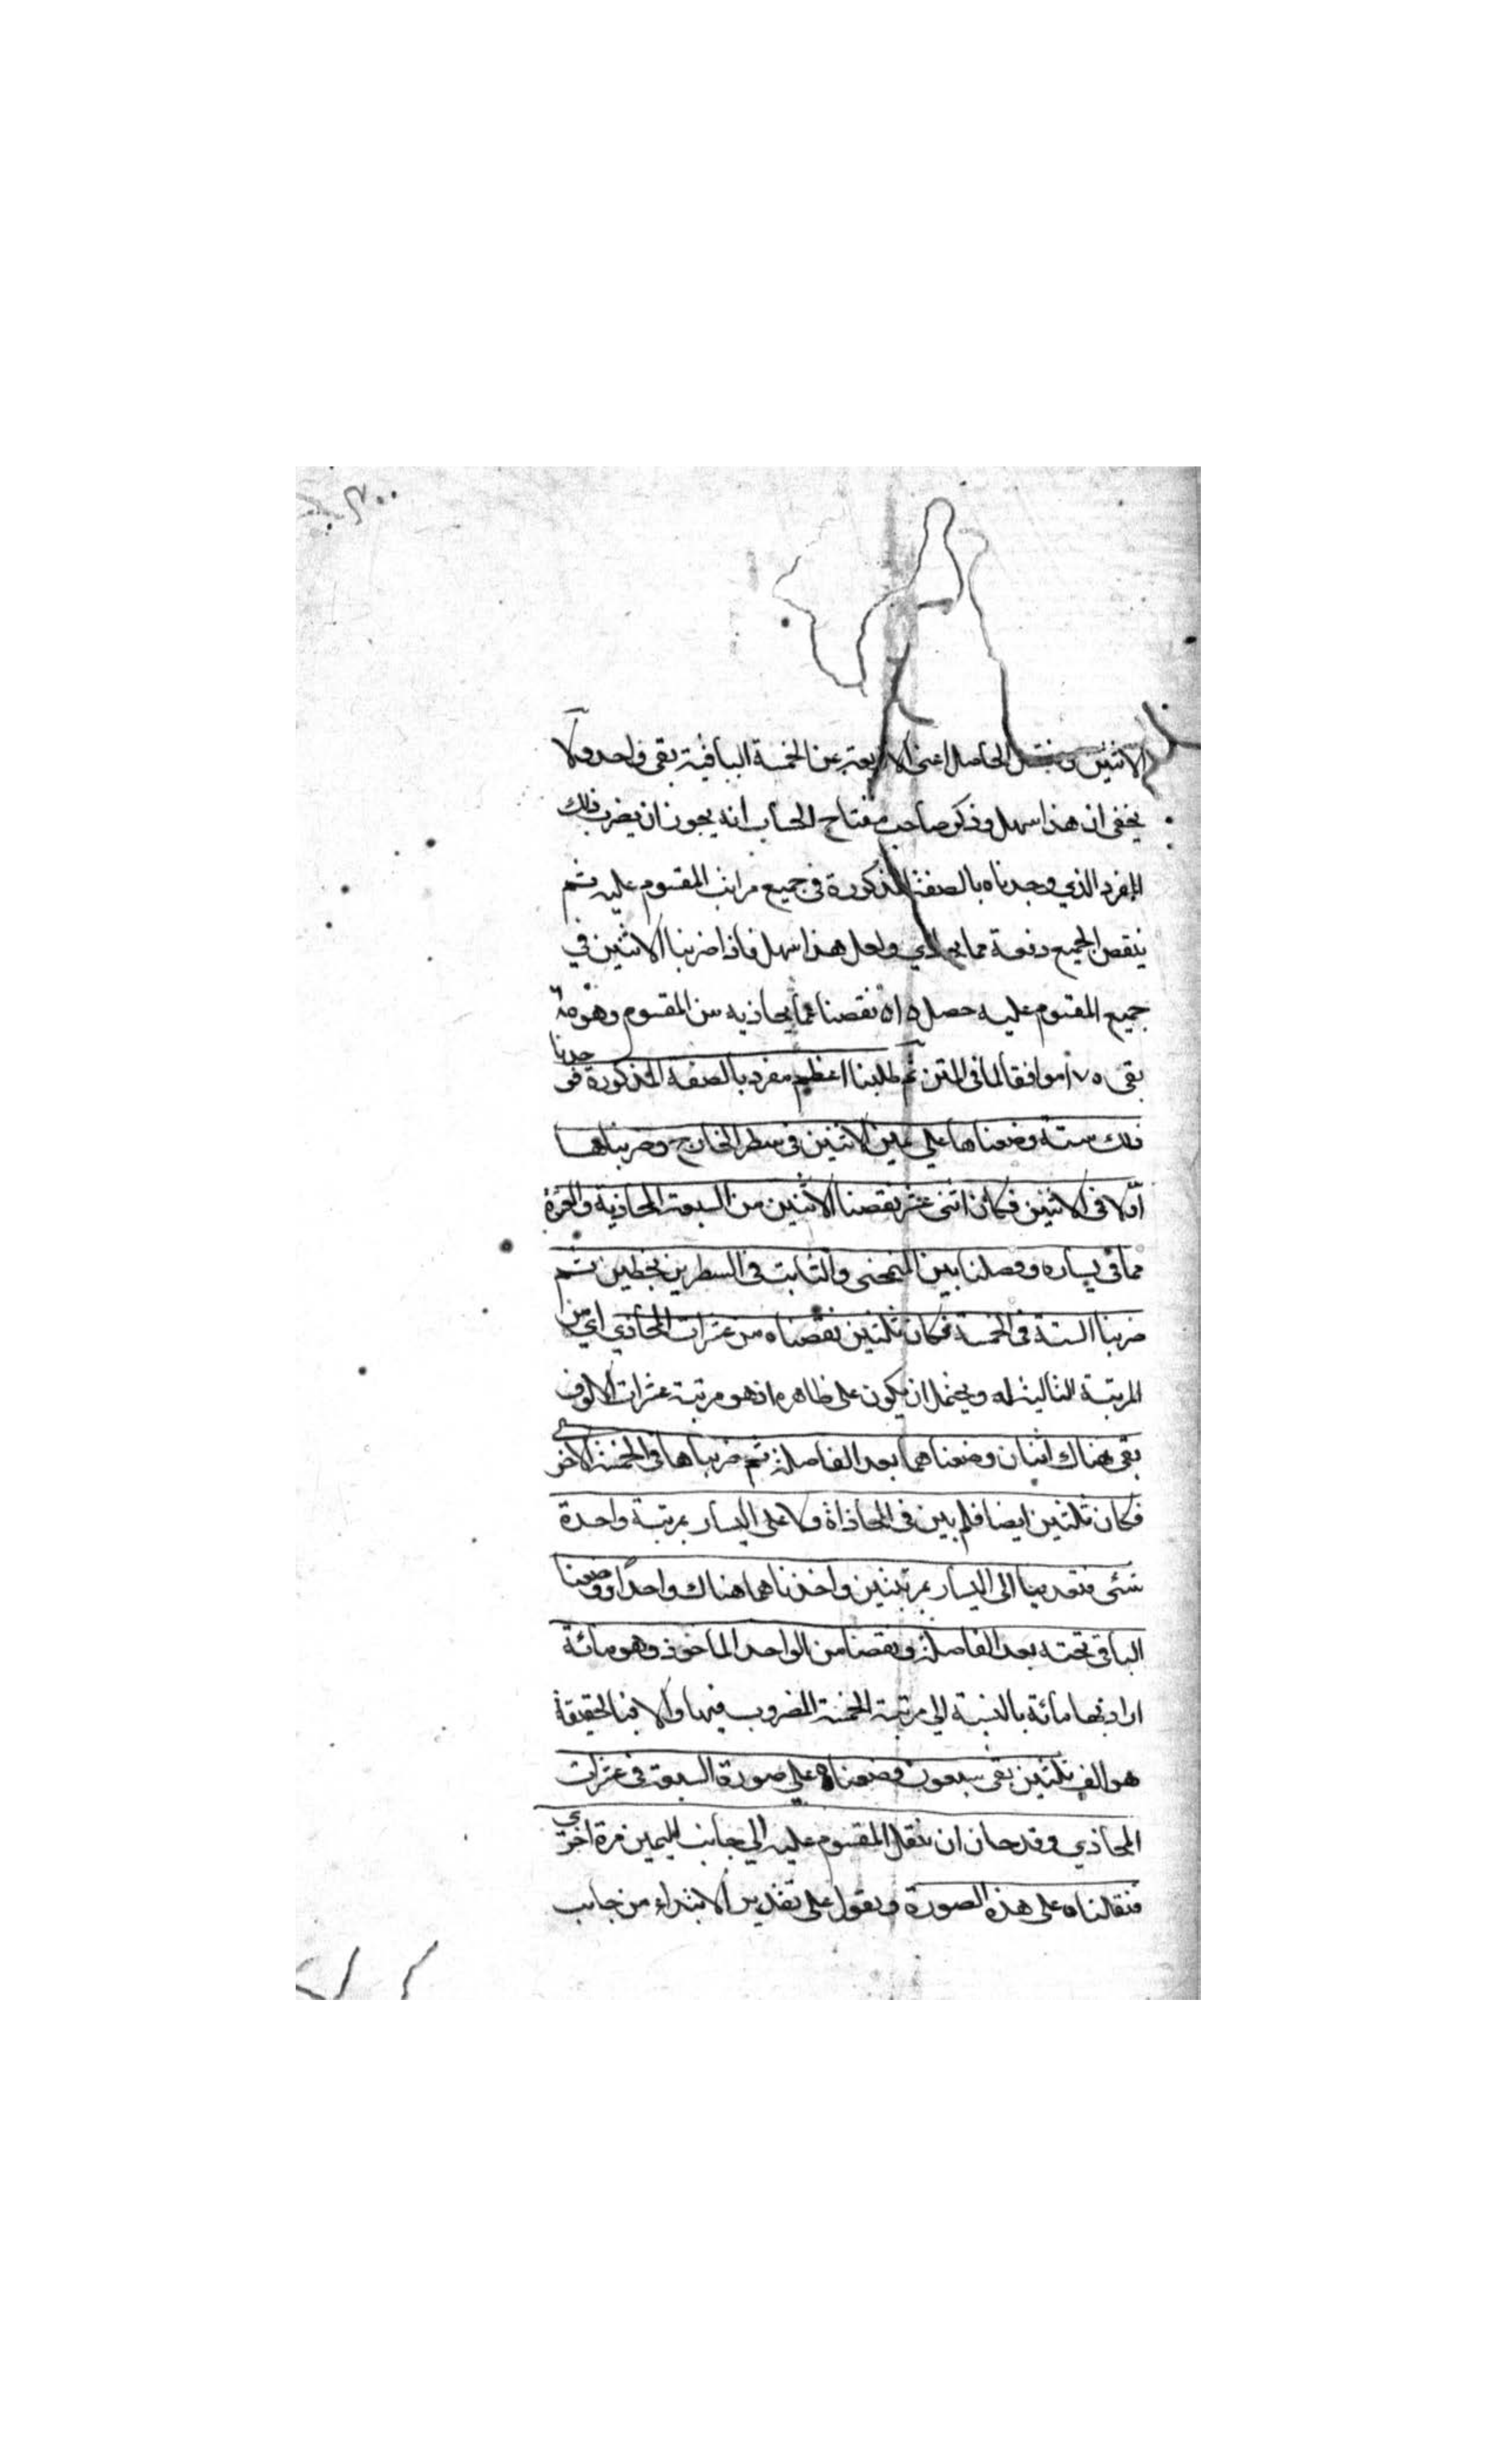 الاثنين وننقص الحاصل اعني الاربعة عن الخمسة الباقية بقي واحد ولا
يخفى ان هذا سهل وذكر صاحب مفتاح الحساب انه يجوز ان يضرب ذلك
المفرد الذي وجدناه بالصفة المذكورة في جميع مراتب المقسوم عليه ثم
ينقص الجميع دفعة مما يحاذي ولعل هذا اسهل فاذا ضربنا الاثنين في
جميع المقسوم عليه حصل نقصنا مما يحاذيه من المقسوم وهو
بقي ١٧٥ موافقا لما في المتن ثم طلبنا اعظم مفرد بالصفة المذكورة فوجدنا
ذلك ستة وضعناها على يمين الاثنين في سطر الخارج وضربناها
اولا في الاثنين فكان اثنى عشر نقصنا الاثنين من السبعة المحاذية والعشرة
مما في يساره وفصلنا بين الممحى والثابت في السطرين بخطين ثم
ضربنا الستة في الخمسة فكان ثلثين نقصناه من عشرات المحاذي اي من
المرتبة الثالية له ويحتمل ان يكون على ظاهره اذ هو مرتبة عشرات الالوف
بقي هناك اثنان وضعناهما بعد الفاصلة ثم ضربناها في الخمسة الاخرى
فكان ثلثين ايضا فلم يبين في المحاذاة ولا على اليسار بمرتبة واحدة
شئ فتعدينا الى اليسار بمرتبتين واخذنا مما هناك واحدا ووضعنا
الباقي تحته بعد الفاصلة ونقصنا من الواحد الماخوذ وهو مائة
اراد بها مائة بالنسبة الى مرتبة الخمسة المضروب فيها والا فبالحقيقة
هو الف ثلثين بقي سبعون وضعناه على صورة السبعة في عشرات
المحاذي وقد حان ان ننقل المقسوم عليه الى جانب اليمين مرة اخرى
فنقلناه على هذه الصورة ونقول على تقدير الابتداء من جانب